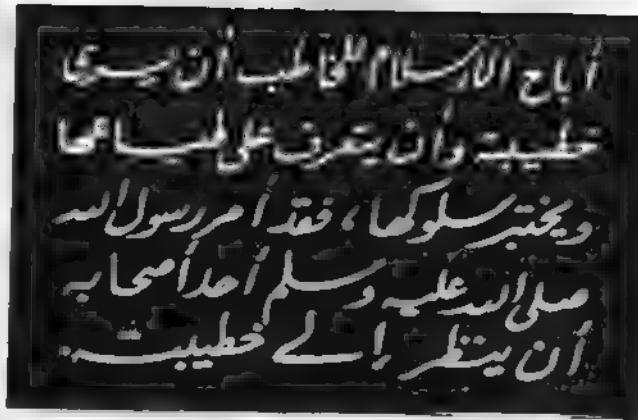 أباح الإسلام للخاطب أن يرى
خطيبته وأن يتعرف على طباعها
ويختبر سلوكها، فقد أمر رسول الله
صلى الله عليه وسلم أحد أصحابه
أن ينظر إلى خطيبته.